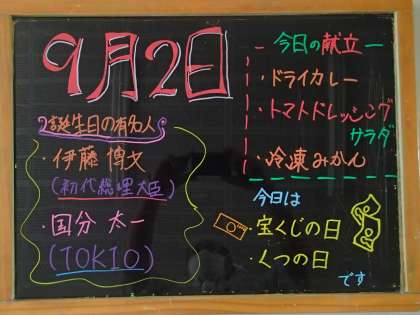 9月2日
誕生日の有名人
・伊藤 博文
(初代総理大臣)
・国分 太一
(TOKIO)
今日の献立
・ドライカレー
・トマトドレッシング
サラダ
・冷凍みかん
今日は
・宝くじの日
・くつの日
です